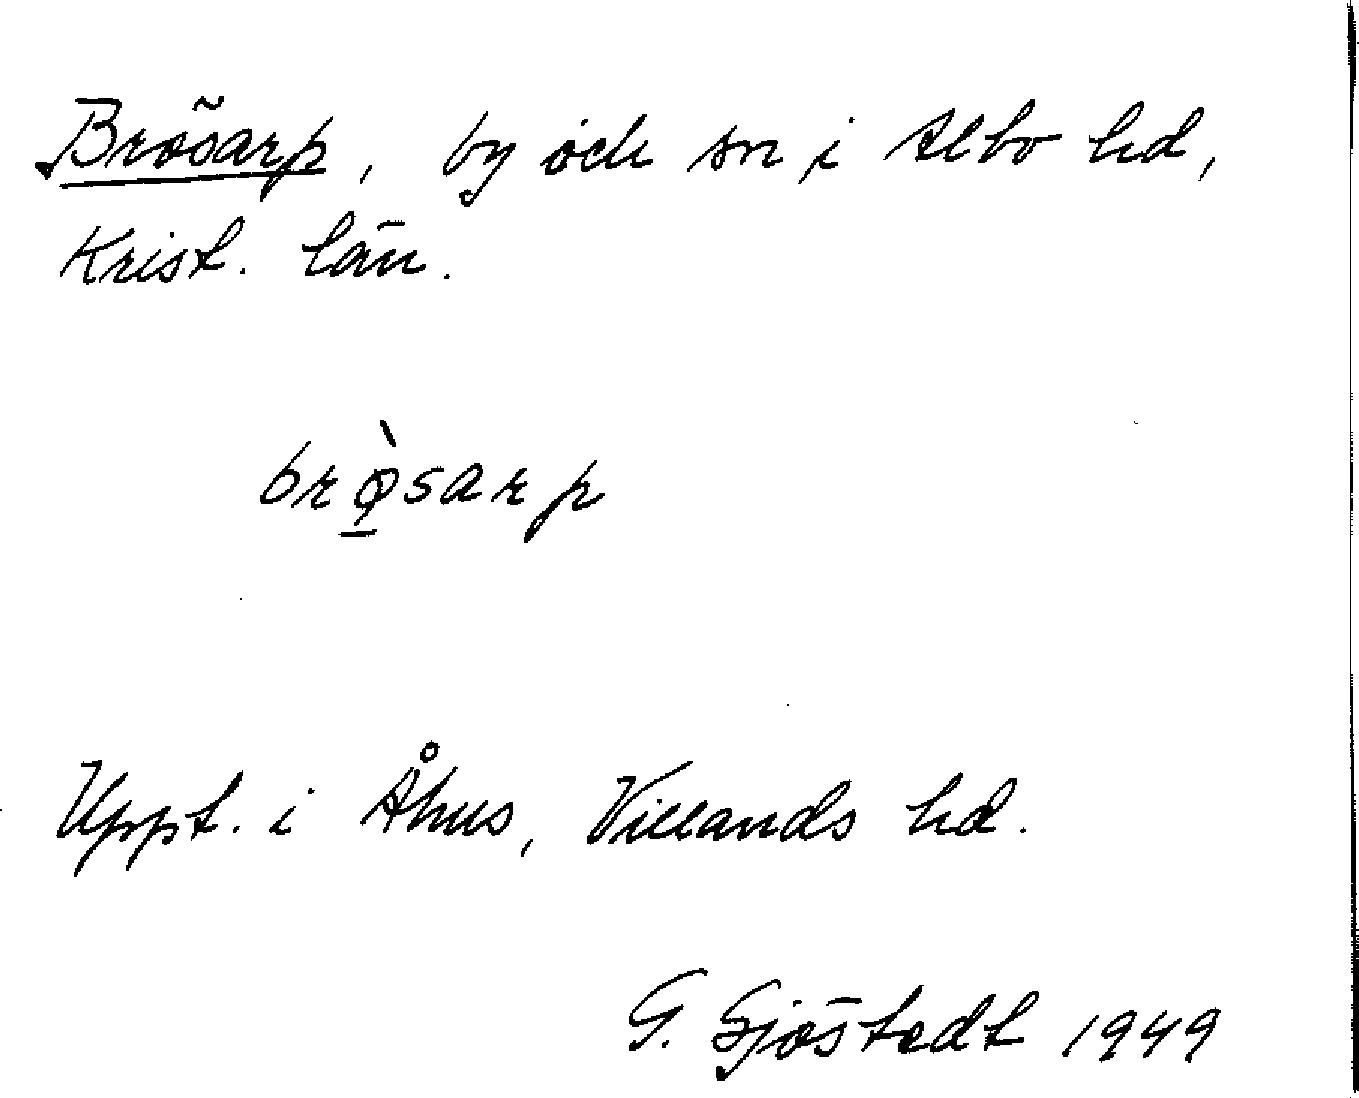 Brösarp, by och sn i Albo hd,
Krist. län.
brø̱̀sarp
Uppt. i Åhus, Villands hd.
G. Sjöstedt 1949